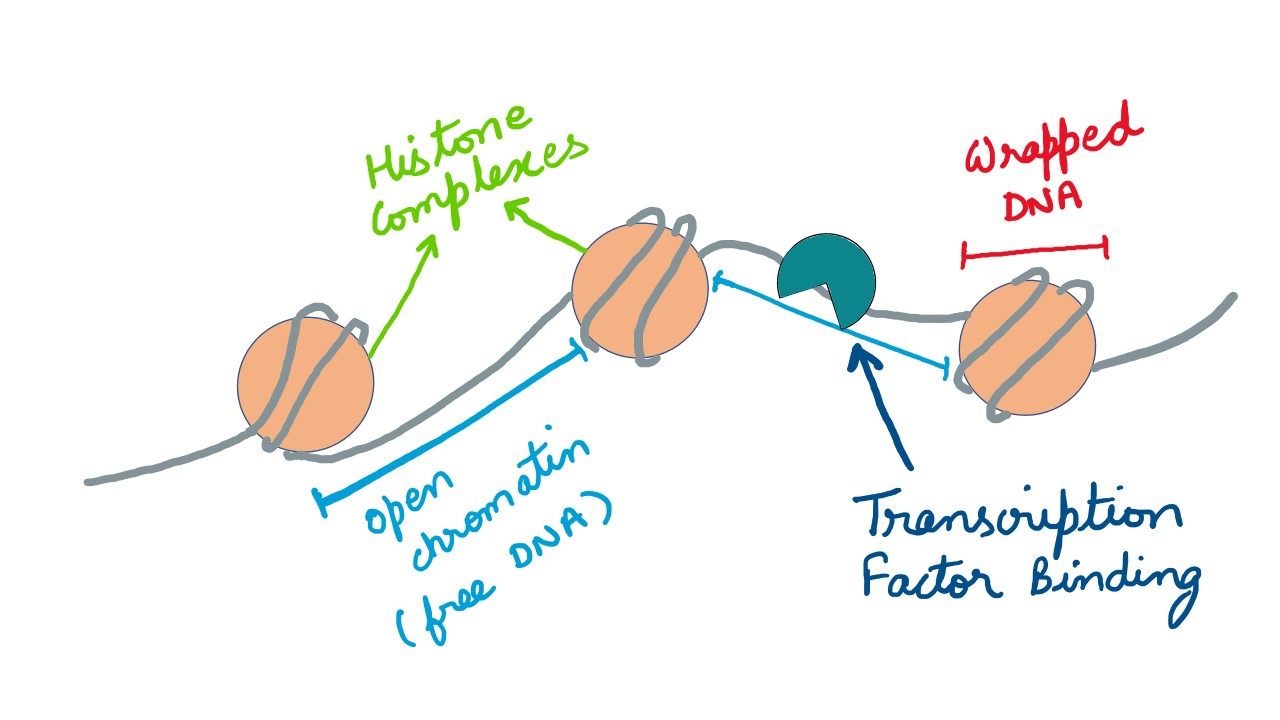 Histone
Complexes
Wrapped
DNA
Open
chromatin
(free DNA)
Transcription
Factor Binding